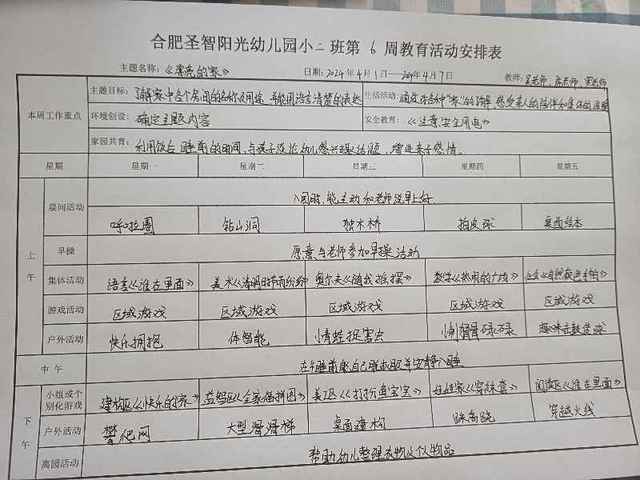 合肥圣智阳光幼儿园小二班第 6 周教育活动安排表
主题名称:《漂亮的家》 日期:2024年4月1日—2024年4月7日 教师:
本周工作重点
主题目标: 了解家中各个房间的名称及用途,并能用语言清楚的表达
生活活动:
环境创设: 确定主题内容
安全教育: 《注意安全用电》
家园共育: 利用饭后、睡前的时间,与孩子谈论幼儿感兴趣话题,增进亲子感情。
星期 星期一 星期二 星期三 星期四 星期五
上午
晨间活动 入园时,能主动和老师说早上好
呼啦圈 钻山洞 独木桥 拍皮球 桌面绘本
早操 愿意与老师参加早操活动
集体活动 语言《谁在里面》 美术《清明时节雨纷纷》 奥尔夫
游戏活动 区域游戏 区域游戏 区域游戏 区域游戏 区域游戏
户外活动 快乐拥抱 体智能 小青蛙捉害虫
中午
下午
小组或个别化游戏 建构区《快乐的家》 益智区《全家福拼图》 美工区 阅读区《谁在里面》
户外活动 攀爬网 大型滑滑梯 桌面建构 跳房子 穿越火线
离园活动 帮助幼儿整理衣物及个人物品